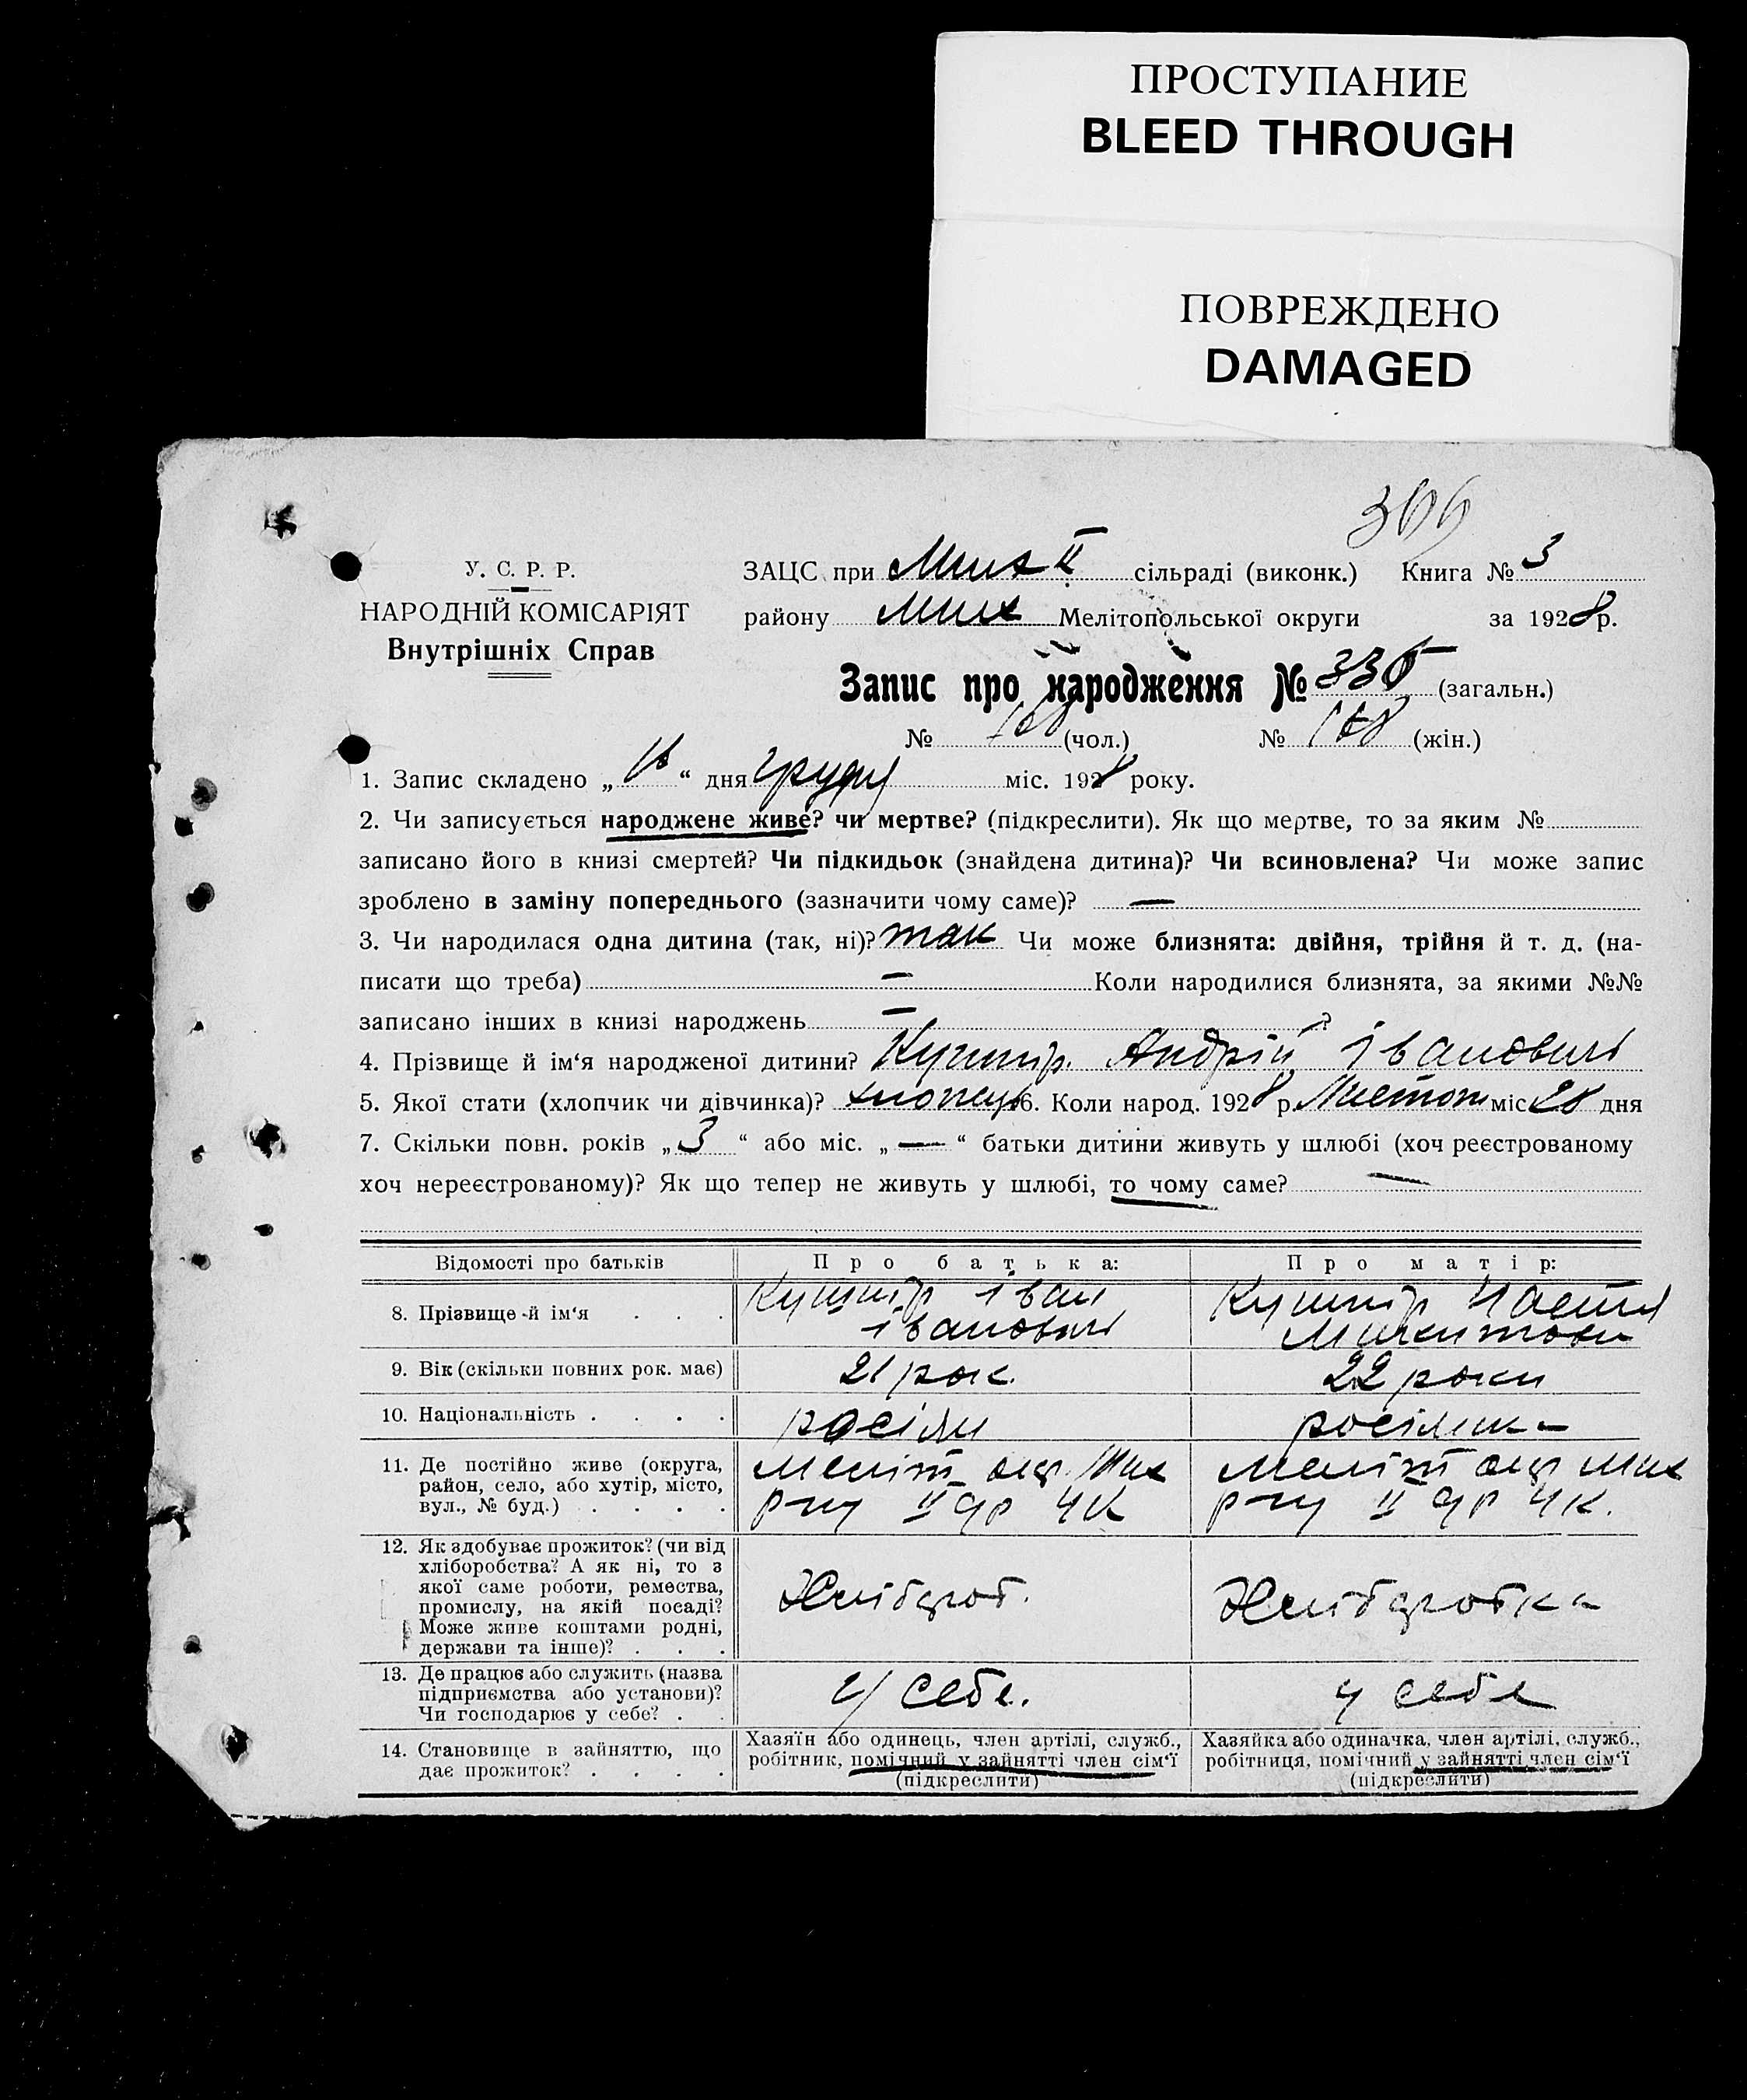 ПРОСТУПАНИЕ
BLEED THROUGH
ПОВРЕЖДЕНО
DAMAGED
У. С. Р. Р.
НАРОДНІЙ КОМІСАРІЯТ
Внутрішніх Справ
ЗАЦС при Мих II сільраді (виконк.) Книга № 3
району Мих Мелітопольської округи за 1928 р.
Запис про народження № (загальн.)
№ (чол.) № (жін.)
1. Запис складено „ “ дня грудня міс. 1928 року.
2. Чи записується народжене живе? чи мертве? (підкреслити). Як що мертве, то за яким №
записано його в книзі смертей? Чи підкидьок (знайдена дитина)? Чи всиновлена? Чи може запис
зроблено в заміну попереднього (зазначити чому саме)? —
3. Чи народилася одна дитина (так, ні)? так Чи може близнята: двійня, трійня й т. д. (на-
писати що треба) — Коли народилися близнята, за якими №№
записано інших в книзі народжень — ?
4. Прізвище й ім‘я народженої дитини? Кушнір Андрій Іванович
5. Якої стати (хлопчик чи дівчинка)? хлопець 6. Коли народ. 1928 р. Листоп міс 28 дня
7. Скільки повн. років „ 3 “ або міс. „ — “ батьки дитини живуть у шлюбі (хоч реєстрованому
хоч нереєстрованому)? Як що тепер не живуть у шлюбі, то чому саме? —
Відомості про батьків Про батька: Про матір:
8. Прізвище й ім‘я . . . Кушнір Іван Іванович Кушнір Настя
9. Вік (скільки повних рок. має) 21 рок. 22 роки
10. Національність . . . . росіян росіянка
11. Де постійно живе (округа, Меліт. окр. Мих Меліт окр Мих
район, село, або хутір, місто, р-ну II р-ну II
вул., № буд.) . . . .
12. Як здобуває прожиток? (чи від
хліборобства? А як ні, то з
якої саме роботи, ремества,
промислу, на якій посаді? Хлібороб. Хліборобка
Може живе коштами родні,
держави та інше)? . . .
13. Де працює або служить (назва
підприємства або установи)? У себе. у себе
Чи господарює у себе? . .
14. Становище в зайняттю, що
дає прожиток? . . . .
Хазяїн або одинець, член артілі, служб.,
робітник, помічний у зайнятті член сім‘ї
(підкреслити)
Хазяйка або одиначка, член артілі, служб.,
робітниця, помічний у зайнятті член сім‘ї
(підкреслити)